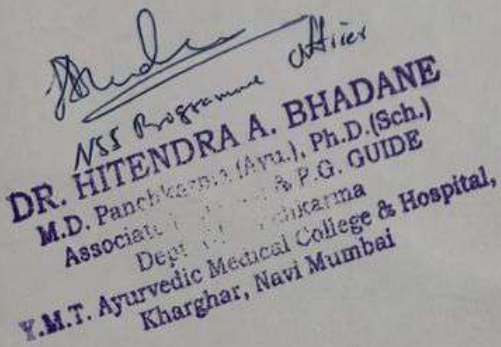 NSS Programme Officer
DR. HITENDRA A. BHADANE
M.D. Panchkarma (Ayu.), Ph.D.(Sch.)
Associate & P.G. GUIDE
Dept Panchkarma
Y.M.T. Ayurvedic Medical College & Hospital,
Kharghar, Navi Mumbai